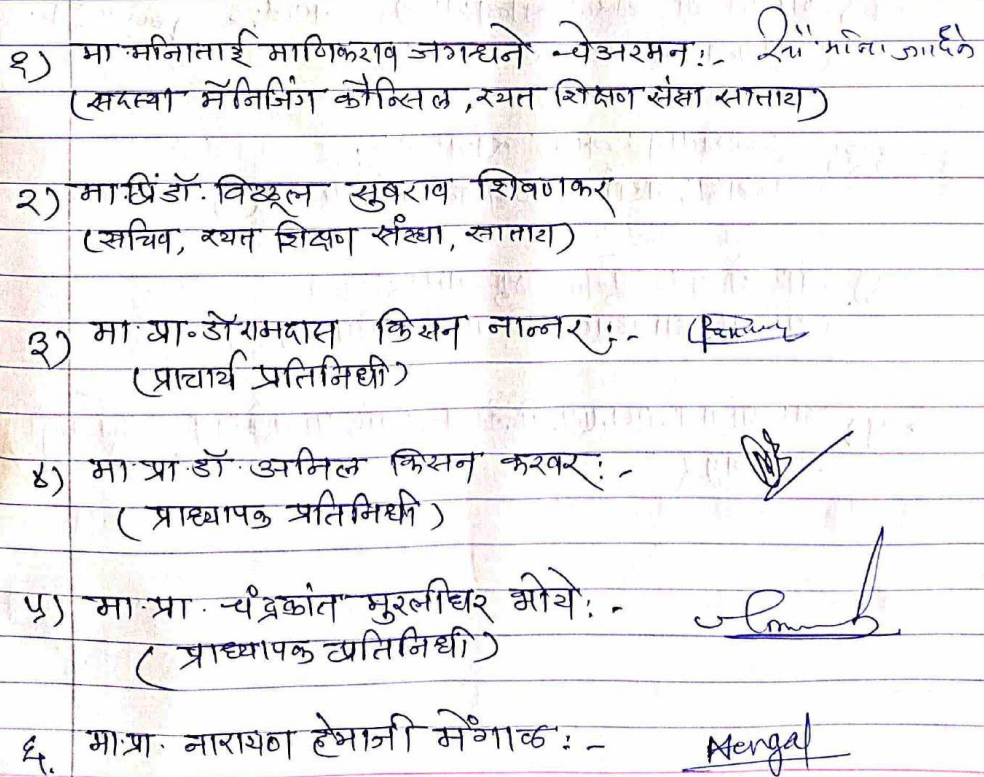 १) मा. मीनाताई माणिकराव जगधने चेअरमन:-
(सदस्या मॅनेजिंग कौन्सिल, रयत शिक्षण संस्था सातारा)
२) मा. प्रिं डॉ. विठ्ठल सुबराव शिवणकर
(सचिव, रयत शिक्षण संस्था, सातारा)
३) मा. प्रा. डॉ रामदास किसन नान्नर:-
(प्राचार्य प्रतिनिधी)
४) मा. प्रा. डॉ. अनिल किसन करवर:-
(प्राध्यापक प्रतिनिधी)
५) मा. प्रा. चंद्रकांत मुरलीधर भोये:-
(प्राध्यापक प्रतिनिधी)
६. मा. प्रा. नारायण हेमाजी मेंगाळ:- Mengal